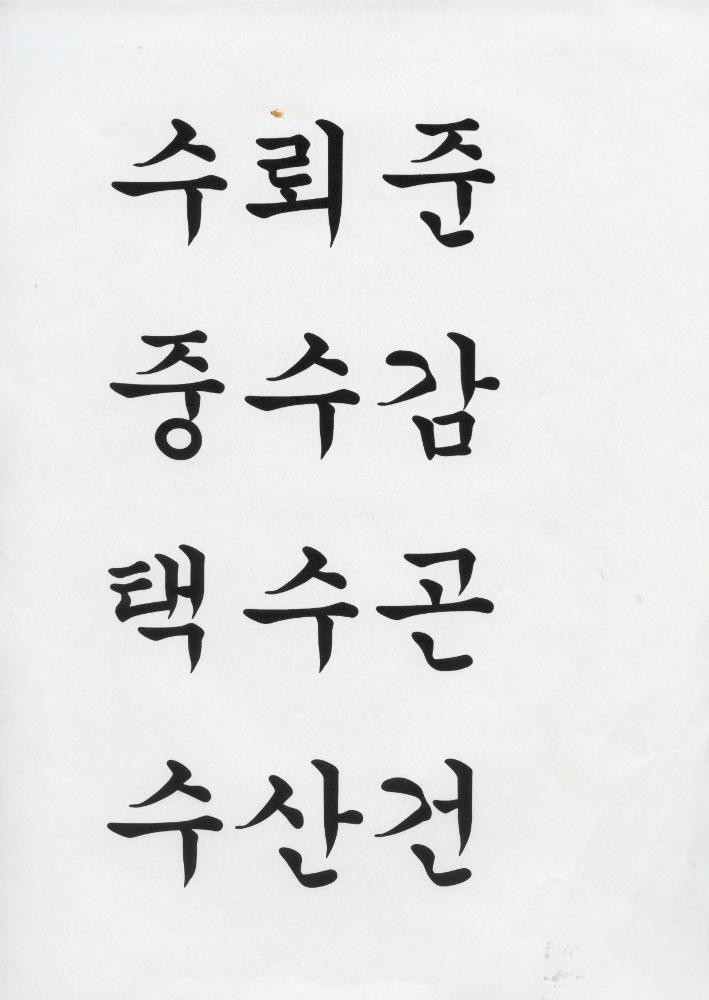 수뢰준
중수감
택수곤
수산건